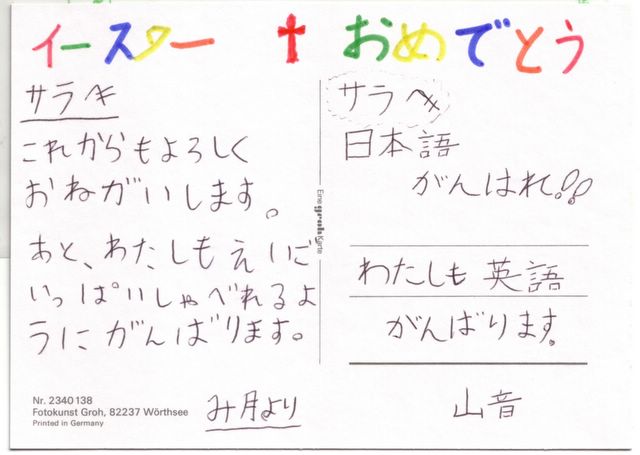 イースター ✝ おめでとう
サラへ
これからもよろしく
おねがいします。
あと、わたしもえいご
いっぱいしゃべれるよ
うにがんばります。
み月より
Nr. 2340138
Fotokunst Groh, 82237 Wörthsee
Printed in Germany
Eine Karte
サラへ
日本語
がんはれ!!
わたしも 英語
がんばります。
山音